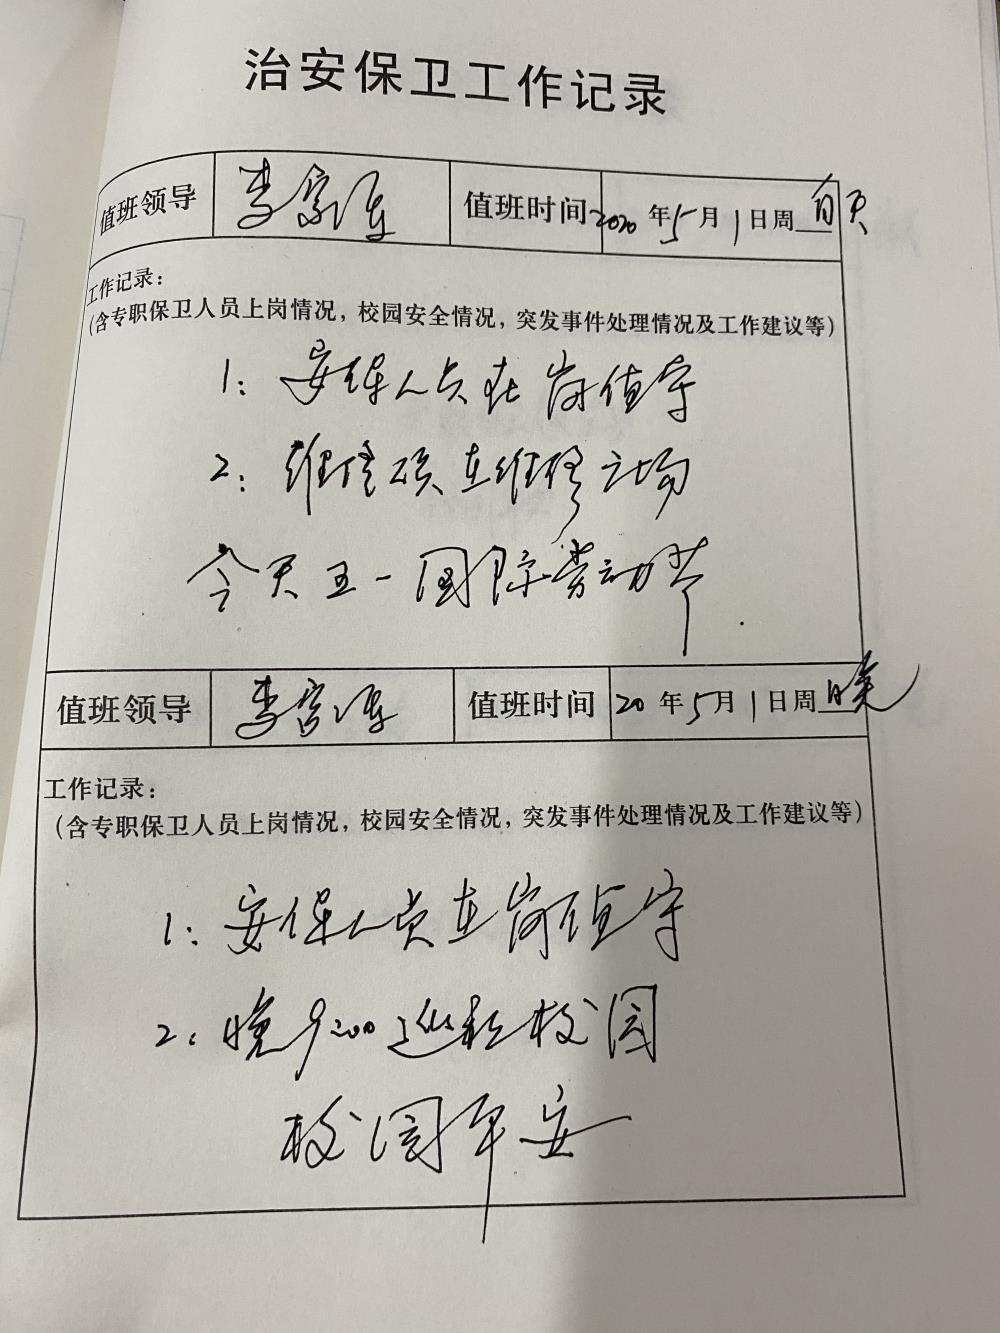 治安保卫工作记录
值班领导 李富海 值班时间 2020年5月1日周白天
工作记录：
(含专职保卫人员上岗情况，校园安全情况，突发事件处理情况及工作建议等)
1：安保人员在岗值守
2：维修在维修
今天五一国际劳动节.
值班领导 李富海 值班时间 20年5月1日周晚
工作记录：
(含专职保卫人员上岗情况，校园安全情况，突发事件处理情况及工作建议等)
1：安保人员在岗值守
2：晚9:00巡校园
校园平安